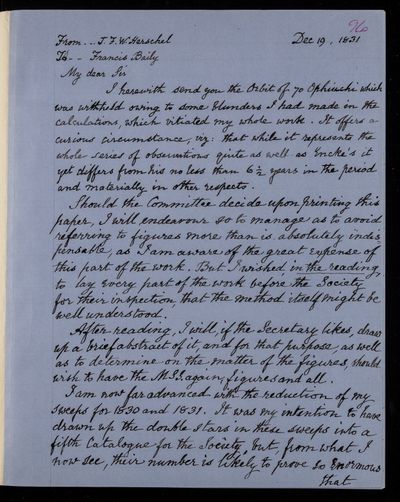 76
From.. J. F. W. Herschel Dec 19, 1831
To - - Francis Baily
My dear Sir
I herewith send you the Orbit of 70 Ophiuchi which
was withheld owing to some blunders I had made in the
calculations, which vitiated my whole work. It offers a
curious circumstance, viz: that while it represents the
whole series of observations quite as well as Encke's it
yet differs from his no less than 6½ years in the period
and materially in other respects.
Should the Committee decide upon printing this
paper, I will endeavour so to manage as to avoid
referring to figures more than is absolutely indis-
pensable, as I am aware of the great expense of
this part of the work. But I wished, in the reading,
to lay every part of the work before the Society
for their inspection, that the method itself might be
well understood.
After reading, I will, if the Secretary likes, draw
up a brief abstract of it, and for that purpose, as well
as to determine on the matter of the figures, should
wish to have the MSS. again, figures and all.
I am now far advanced with the reduction of my
sweeps for 1830 and 1831. It was my intention to have
drawn up the double stars in these sweeps into a
fifth Catalogue for the Society, but, from what I
now see, their number is likely to prove so enormous
that